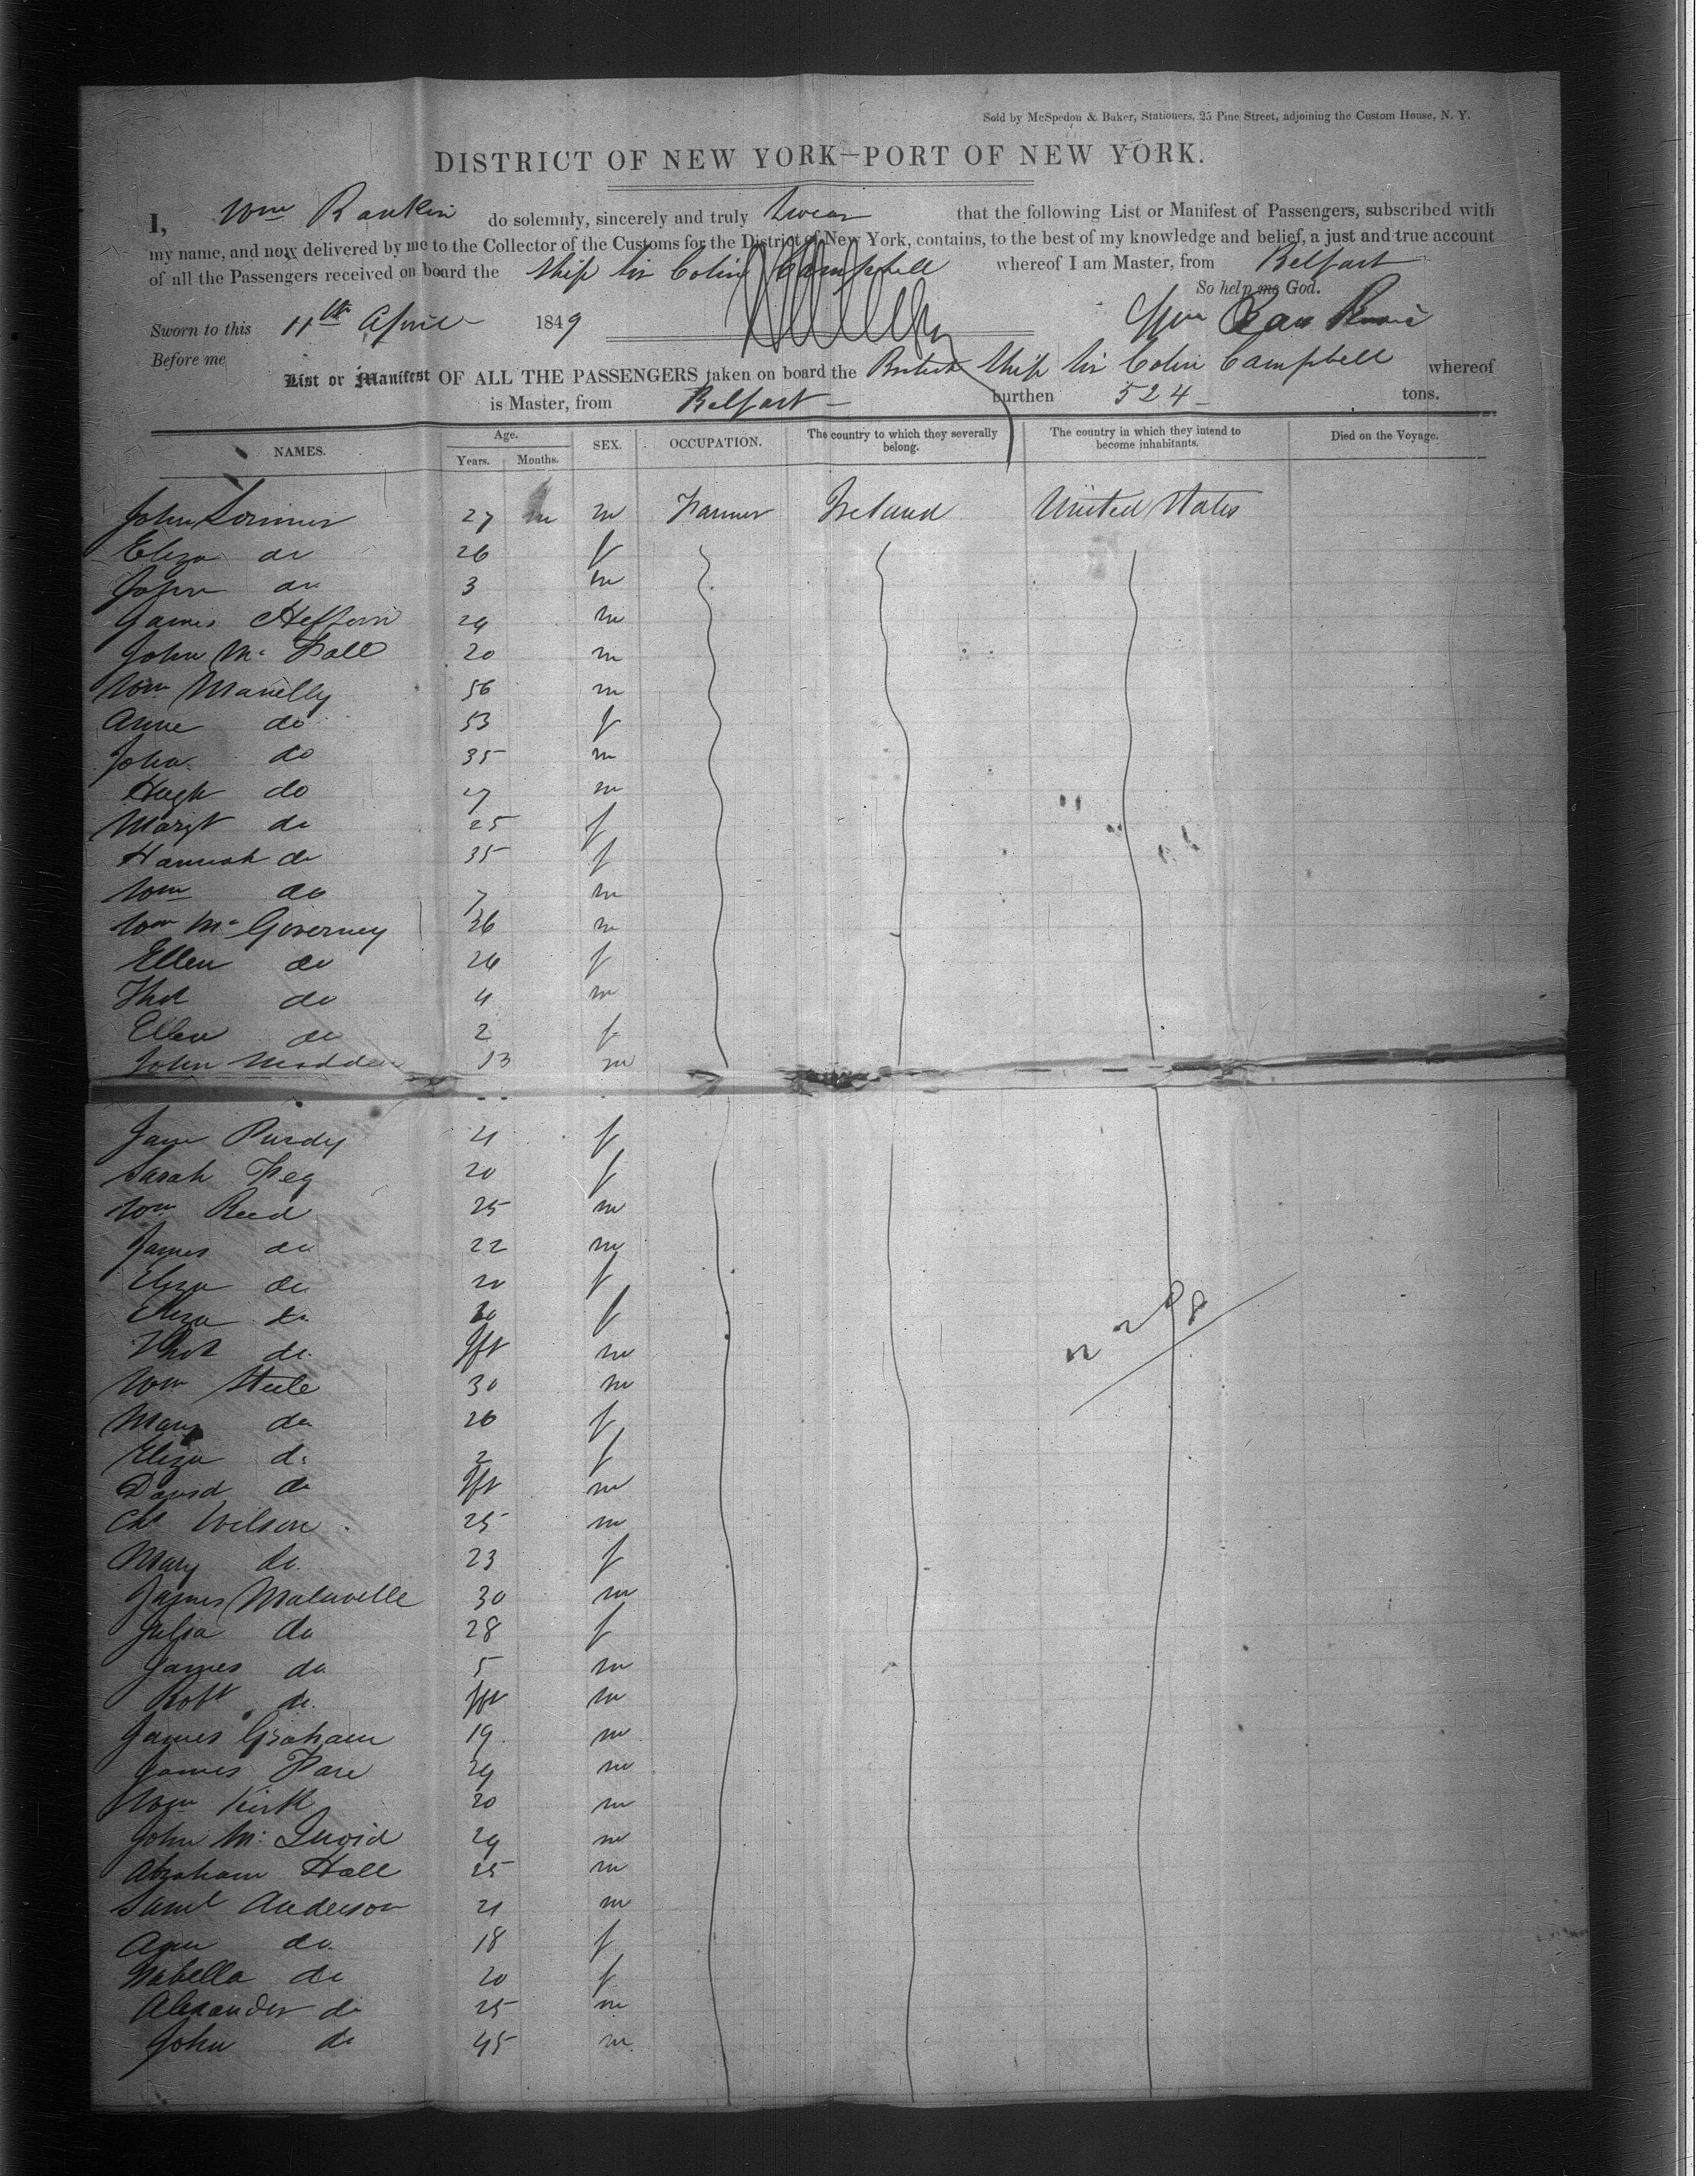 Sold by McSpedon & Baker, Stationers, 25 Pine Street, adjoining the Custom House, N. Y.
DISTRICT OF NEW YORK—PORT OF NEW YORK.
I, Wm Rankin do solemnly, sincerely and truly Swear that the following List or Manifest of Passengers, subscribed with
my name, and now delivered by me to the Collector of the Customs for the District of New York, contains, to the best of my knowledge and belief, a just and true account
of all the Passengers received on board the Ship Sir Colin Campbell whereof I am Master, from Belfast
So help me God.
Sworn to this 11th April 1849 Wm
Before me
List or Manifest OF ALL THE PASSENGERS taken on board the British Ship Sir Colin Campbell whereof
is Master, from Belfast burthen 524 tons.
NAMES. Age. Years. Months. SEX. OCCUPATION. The country to which they severally belong. The country in which they intend to become inhabitants. Died on the Voyage.
John 27 m Farmer Ireland United States
Eliza do 26 f
John do 3 m
James 24 m
John Mc Fall 20 m
Wm 56 m
Anne do 53 f
John do 35 m
Hugh do 7 m
Margt do 25 f
Hannah do 35 f
Wm do 7 m
Wm McGoverney 36 m
Ellen do 26 f
Thos do 4 m
Ellen do 2 f
John Madden 13 m
Jane Purdy 21 f
Sarah 20 f
Wm Reed 25 m
James do 22 m
Eliza do 20 f
Eliza do f
Thos do Ift m
Wm Steele 30 m
Mary do 26 f
Eliza do 2 f
David do Ift m
Chs Wilson 25 m
Mary do 23 f
James 30 m
Julia do 28 f
James do 5 m
Robt do Ift m
James Graham 19 m
James 24 m
Wm Kirk 20 m
John Mc 24 m
Abraham Hall 25 m
Saml Anderson 21 m
do 18 f
Isabella do 20 f
Alexander do 25 m
John do 45 m